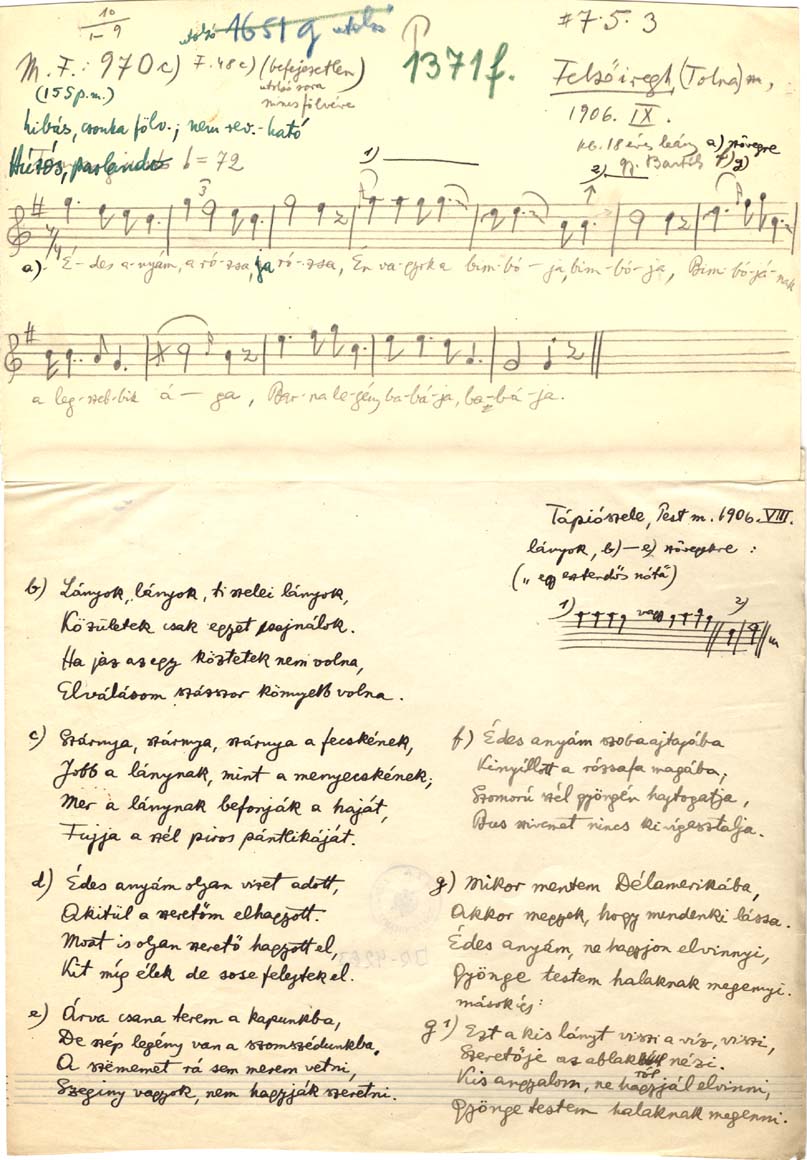 10
1–9
utolsó 1651 g utolsó
# 7. 5. 3
M. F.: 970 c) F. 48 c) (befejezetlen)
utolsó sora
nincs fölvéve
1371 f.
(155 p.m.)
Felsőiregh, (Tolna) m.,
1906. IX.
hibás, csonka fölv.; nem rev.-ható
kb. 18 éves leány a) szövegre
gy. Bartók f) g)
Húzós, parlando = 72
1)
2)
3
7/4
a). É-des a-nyám, a ró-zsa, ja ró-zsa, Én va-gyok a bim-bó-ja, bim-bó-ja, Bim-bó-já-nak
a leg-szeb-bik á-ga, Bar-na le-gény ba-bá-ja, ba-bá-ja.
Tápiószele, Pest m. 1906. VIII.
lányok, b)–e) szövegekre:
1) vagy 2)
b) Lányok, lányok, ti szelei lányok,
Közületek csak egyet sajnálok.
Ha jaz az egy köztetek nem volna,
Elválásom százszor könyebb volna.
c) Szárnya, szárnya, szárnya a fecskének,
Jobb a lánynak, mint a menyecskének;
Mer a lánynak befonják a haját,
Fujja a szél piros pántlikáját.
d) Édes anyám olyan vizet adott,
Akitül a szeretőm elhagyott.
Most is olyan szerető hagyott el,
Kit míg élek de sose felejtek el.
e) Árva csana terem a kapunkba,
De szép legény van a szomszédunkba.
A szememet rá sem merem vetni,
Szegíny vagyok, nem hagyják szeretni.
f) Édes anyám szobaajtajába
Kinyillott a rózsafa magába;
Szomorú szél gyöngén hajtogatja,
Bus szivemet nincs ki vigasztalja.
g) Mikor mentem Délamerikába,
Akkor megyek, hogy mindenki lássa.
Édes anyám, ne hagyjon elvinnyi,
Gyönge testem halaknak megennyi.
mások így:
g1) Ezt a kis lányt viszi a víz, viszi,
Szeretője az ablakbúl nézi.
ról
Kis angyalom, ne hagyjál elvinni,
Gyönge testem halaknak megenni.